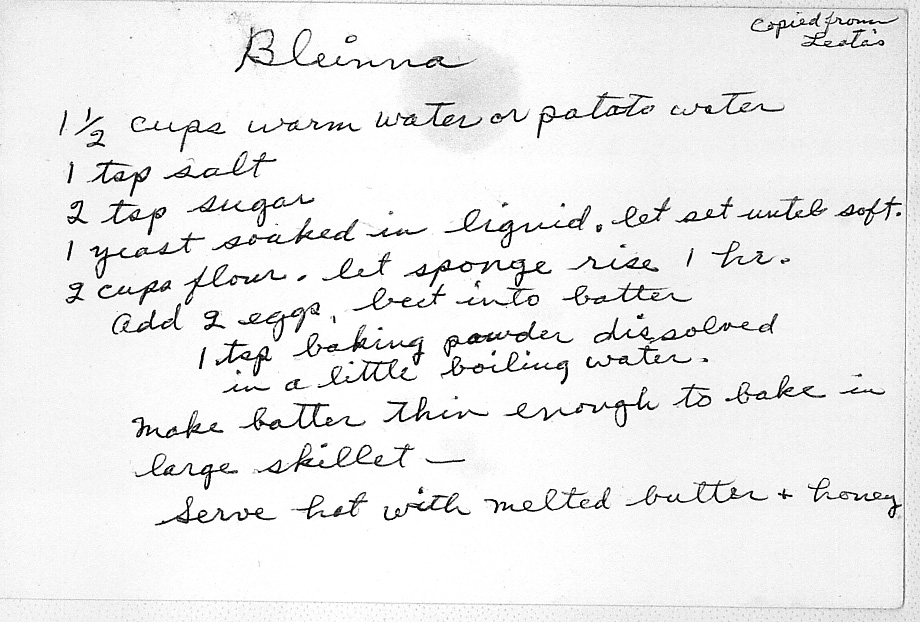 Copied from
Leota's
Bleinna
1 1/2 cups warm water or patato water
1 tsp salt
2 tsp sugar
1 yeast soaked in liquid. let set until soft.
2 cups flour. let sponge rise 1 hr.
Add 2 eggs, beet into batter
1 tsp baking powder dissolved
in a little boiling water.
Make batter thin enough to bake in
large skillet —
Serve hot with melted butter + honey